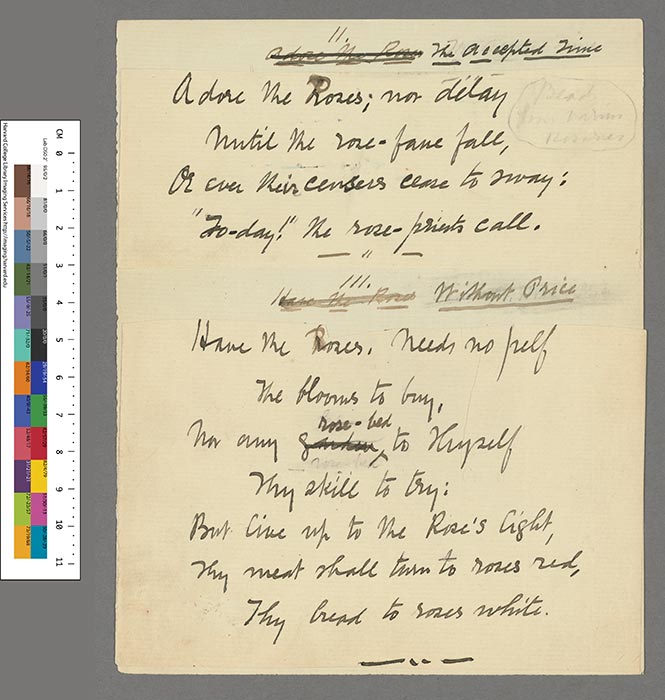 II.
Adore the Roses The Accepted Time
Adore the Roses; nor delay
Until the rose-fane fall,
Or ever their censers cease to sway:
"To-day!" the rose-priests call.
III.
Have the Roses Without Price
Have the Roses. Needs no pelf
The blooms to buy,
rose-bed
Nor any garden, to thyself
rose-bed
Thy skill to try:
But live up to the Rose's light,
Thy meat shall turn to roses red,
Thy bread to roses white.
Harvard College Library Imaging Services
CM 0 1 2 3 4 5 6 7 8 9 10 11